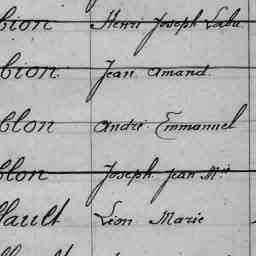 bion Henri Joseph Labu
bion Jean Amand
blon André Emmanuel
blon Joseph Jean Mie
llault Léon Marie